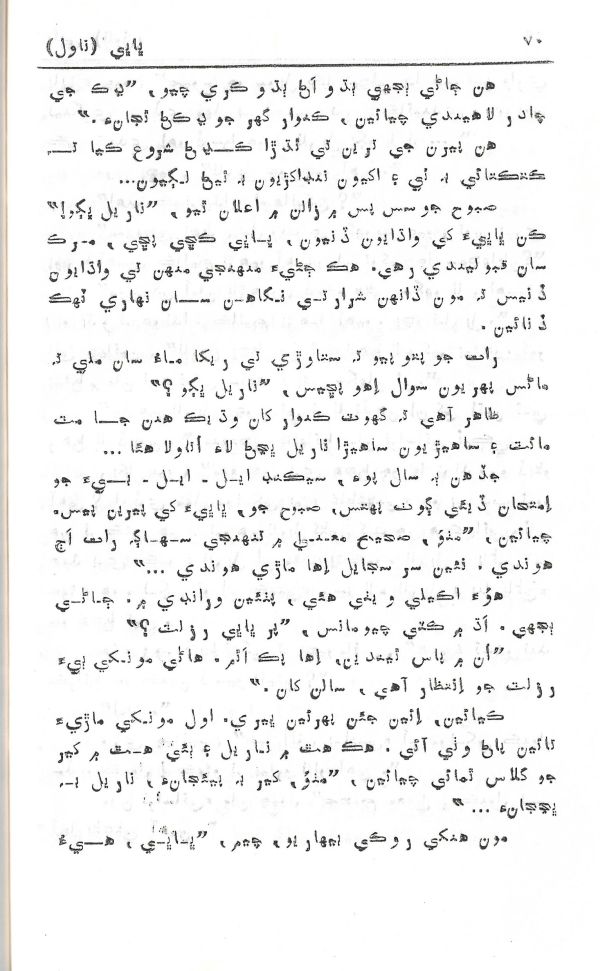 ٧٠ ڀاڀي (ناول)
هن ڄاڻي ٻجهي ٻڌو اڻ ٻڌو ڪري چيو، ”ڍڪ جي
چادر لاهيندي چيائين، ڪنوار گهر جو ڍڪڻ ٿجانءِ.“
هن پيرن جي ترين تي ٿڌڙا ڪڍڻ شروع ڪيا ته
ڪتڪتائي به ٿي ۽ اکيون ننڊاکڙيون به ٿيڻ لڳيون...
صبوح جو سس پس ۾ زالن ۾ اعلان ٿيو، ”ناريل ڀڳو!“
ڪن ڀاڀيءَ کي واڌايون ڏنيون، ڀاڀي ڪچي ٻچي، مرڪ
سان قبوليندي رهي. هڪ ڄڻيءَ منهنجي منهن تي واڌايون
ڏنيس ته مون ڏانهن شرارتي نگاهن سان نهاري ٽهڪ
ڏنائين.
رات جو پتو پيو ته ستاوڙي تي ريکا ماءُ سان ملي ته
ماڻس پهريون سوال اهو پڇيس، ”ناريل ڀڳو؟“
ظاهر آهي ته گهوٽ ڪنوار کان وڌيڪ هنن جا مٽ
مائٽ ۽ ساهيڙيون ساهيڙا ناريل ڀڃڻ لاءِ اُتاولا هئا...
جڏهن ٻه سال پوءِ، سيڪنڊ ايل - ايل - بيءَ جو
امتحان ڏيئي ڳوٺ پهتس، صبوح جو، ڀاڀيءَ کي پيرين پيس.
چيائين، ”منوُ، صحيح معنيٰ ۾ تنهنجي سهاڳ رات اڄ
هوندي. نئين سر سجايل اها ماڙي هوندي ...“
هوءَ اڪيلي ويٺي هئي، پٺئين ورانڊي ۾. ڄاڻي
ٻجهي. اڌ ۾ ڪٽي چيومانس، ”پر ڀاڀي رزلٽ؟“
”اُن ۾ پاس ٿيندين، اها پڪ اٿم. هاڻي مونکي ٻيءَ
رزلٽ جو انتظار آهي، سالن کان.“
ڪيائين، ائين جئن پهرئين ڀيري. اول مونکي ماڙيءَ
تائين پاڻ وٺي آئي. هڪ هٿ ۾ ناريل ۽ ٻئي هٿ ۾ کير
جو گلاس ٿمائي چيائين، ”منوُ، کير به پيئجانءِ، ناريل به
ڀڃجانءِ ...“
مون هنکي روڪي بيهاريو، چيم، ”ڀاڀي، هيءُ